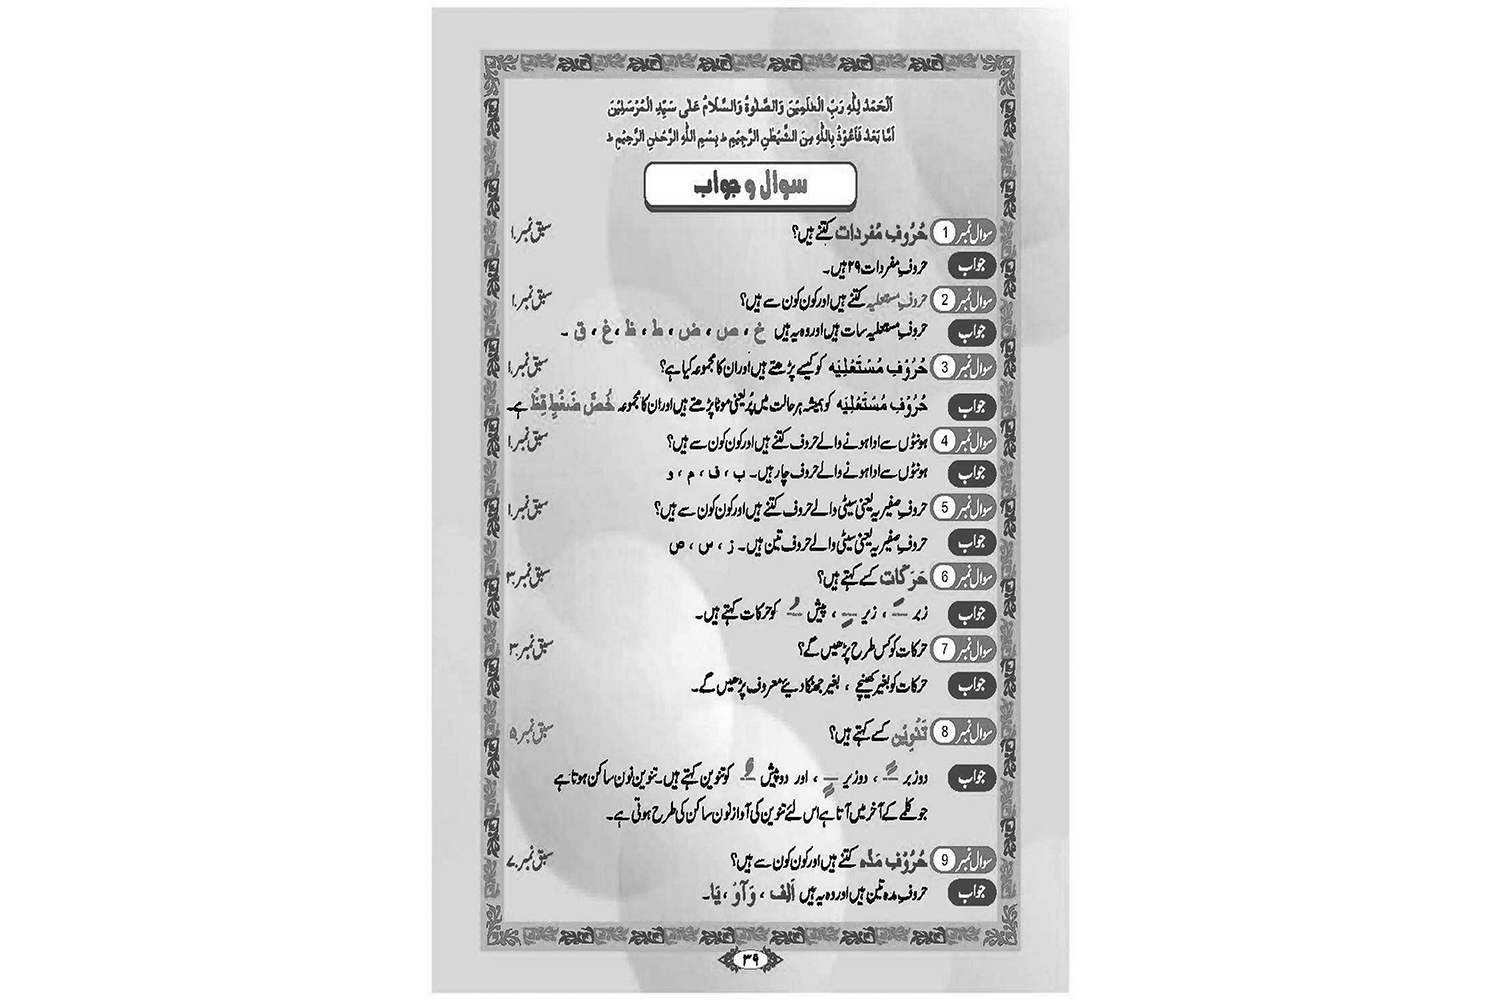 اَلْحَمْدُ لِلّٰهِ رَبِّ الْعٰلَمِيْنَ وَالصَّلٰوةُ وَالسَّلَامُ عَلٰى سَيِّدِ الْمُرْسَلِيْنَ
اَمَّا بَعْدُ فَاَعُوْذُ بِاللّٰهِ مِنَ الشَّيْطٰنِ الرَّجِيْمِ ط بِسْمِ اللّٰهِ الرَّحْمٰنِ الرَّحِيْمِ ط
سوال و جواب
سوال نمبر 1 حُرُوفِ مُفرِدات کتنے ہیں؟ سبق نمبر ۱
جواب حروفِ مفردات ۲۹ ہیں۔
سوال نمبر 2 حروفِ مستعلیہ کتنے ہیں اور کون کون سے ہیں؟ سبق نمبر ۱
جواب حروفِ مستعلیہ سات ہیں اور وہ یہ ہیں خ ، ص ، ض ، ط ، ظ ، غ ، ق ۔
سوال نمبر 3 حُرُوْفِ مُسْتَعْلِیَہ کو کیسے پڑھتے ہیں اور ان کا مجموعہ کیا ہے؟ سبق نمبر ۱
جواب حُرُوْفِ مُسْتَعْلِیَہ کو ہمیشہ ہر حالت میں پُر یعنی موٹا پڑھتے ہیں اور ان کا مجموعہ خُصَّ ضَغْطٍ قِظْ ہے۔
سوال نمبر 4 ہونٹوں سے ادا ہونے والے حروف کتنے ہیں اور کون کون سے ہیں؟ سبق نمبر ۱
جواب ہونٹوں سے ادا ہونے والے حروف چار ہیں۔ ب ، ف ، م ، و
سوال نمبر 5 حروفِ صفیریہ یعنی سیٹی والے حروف کتنے ہیں اور کون کون سے ہیں؟ سبق نمبر ۱
جواب حروفِ صفیریہ یعنی سیٹی والے حروف تین ہیں۔ ز ، س ، ص
سوال نمبر 6 حَرَکَات کسے کہتے ہیں؟ سبق نمبر ۳
جواب زبر ـَ ، زیر ـِ ، پیش ـُ کو حرکات کہتے ہیں۔
سوال نمبر 7 حرکات کو کس طرح پڑھیں گے؟ سبق نمبر ۳
جواب حرکات کو بغیر کھینچے ، بغیر جھٹکا دیئے معروف پڑھیں گے۔
سوال نمبر 8 تَنْوِیْن کسے کہتے ہیں؟ سبق نمبر ۵
جواب دو زبر ـً ، دو زیر ـٍ ، اور دو پیش ـٌ کو تنوین کہتے ہیں۔ تنوین نون ساکن ہوتا ہے
جو کلمے کے آخر میں آتا ہے اس لئے تنوین کی آواز نون ساکن کی طرح ہوتی ہے۔
سوال نمبر 9 حُرُوْفِ مَدَّہ کتنے ہیں اور کون کون سے ہیں؟ سبق نمبر ۷
جواب حروفِ مدہ تین ہیں اور وہ یہ ہیں اَلِف ، وَآوْ ، یَا۔
۳۹